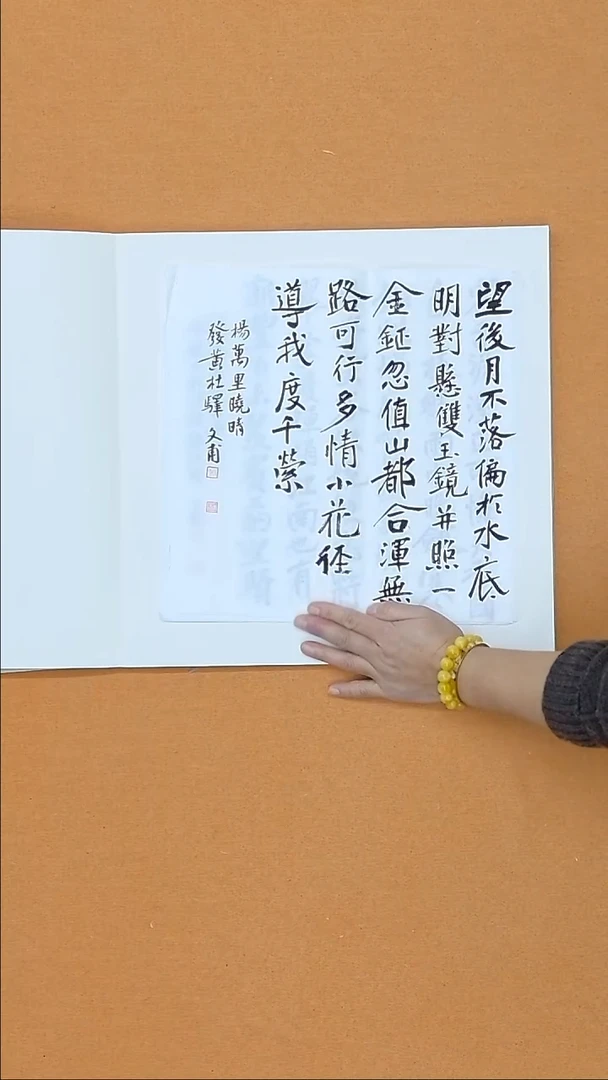 望後月不落偏於水底
明對懸雙玉鏡並照一
金鉦忽值山都合渾無
路可行多情小花徑
導我度千縈
楊萬里曉晴
發黃杜驛 文甫